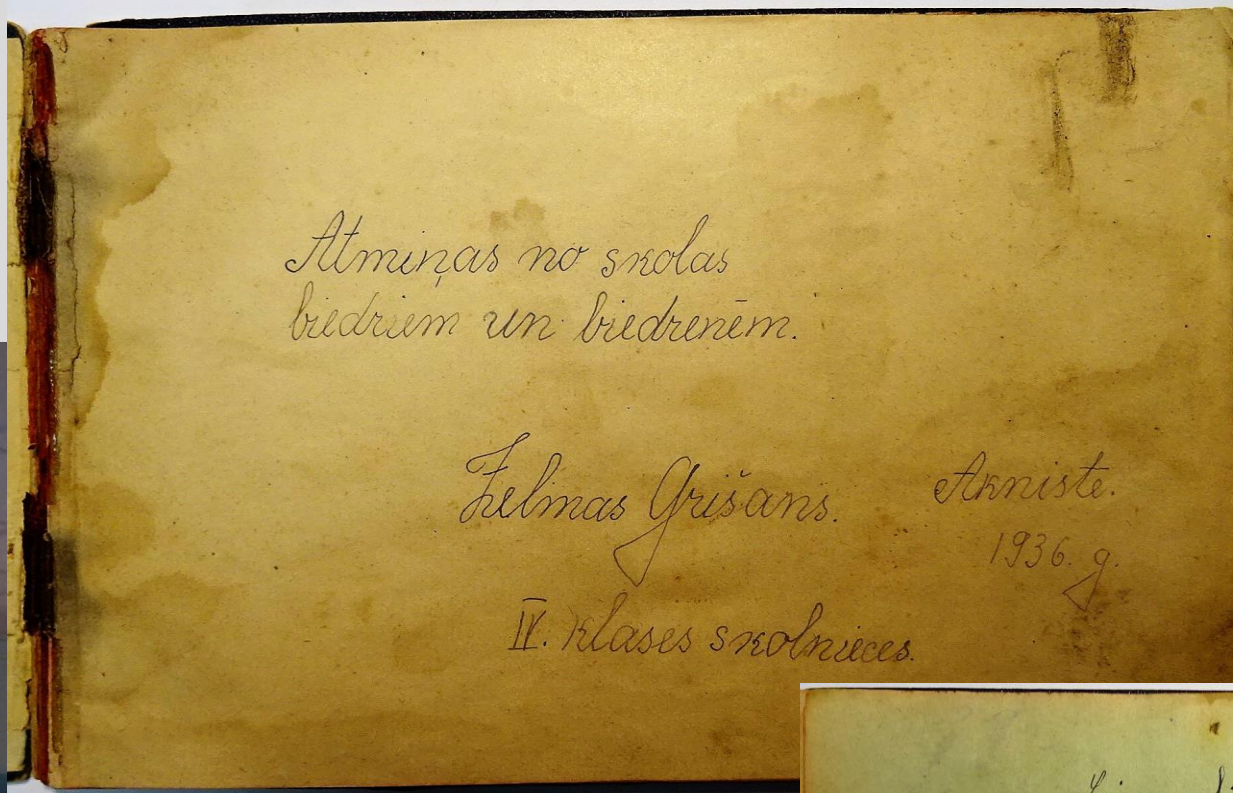 Atmiņas no skolas
biedriem un biedrenēm.
Zelmas Grišans.
Akniste.
1936. g.
IV. klases skolnieces.